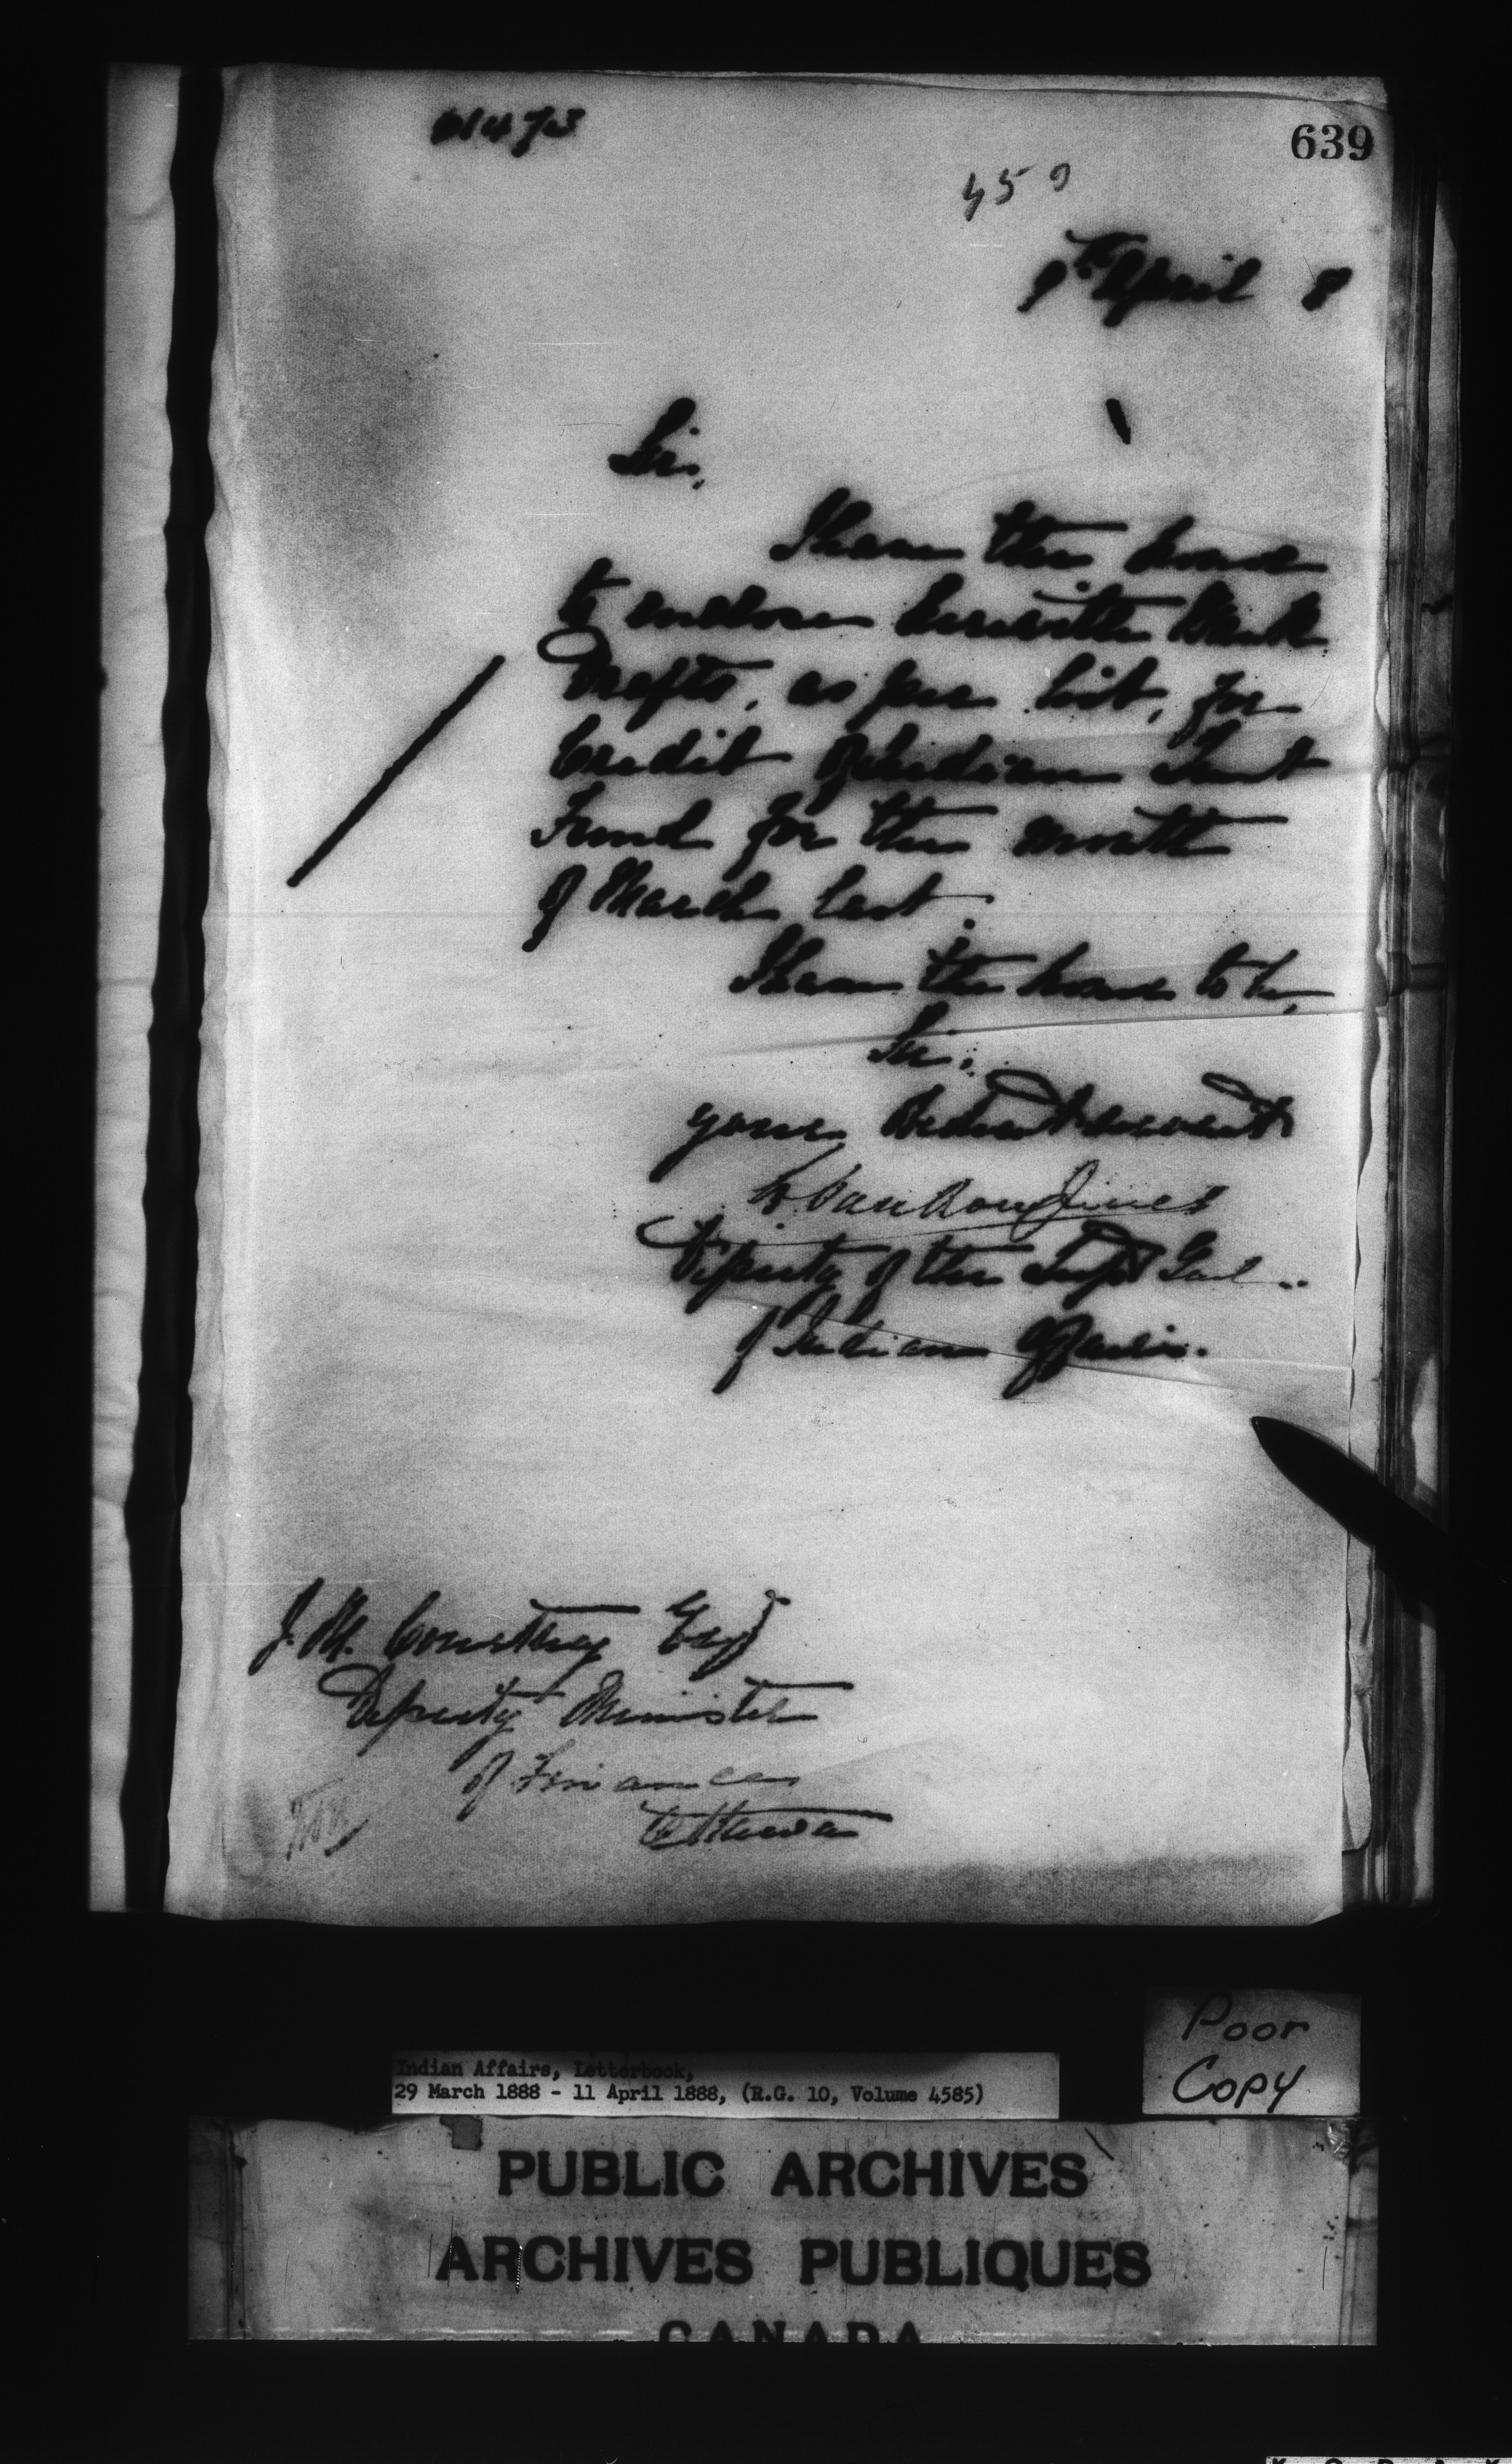 61473
639
459
9th April 8
Sir,
I have the honor
to enclose herewith Bank
Drafts, as per list, for
Credit of Indian Trust
Fund for the month
of March last.
I have the honor to be,
Sir,
your Obedient servant
L. VanKoughnet
Deputy of the Supt Genl.
of Indian Affairs.
J. M. Courtney Esq
Deputy Minister
of Finance
Ottawa
Poor
Copy
Indian Affairs, Letterbook,
29 March 1888 - 11 April 1888, (R.G. 10, Volume 4585)
PUBLIC ARCHIVES
ARCHIVES PUBLIQUES
CANADA